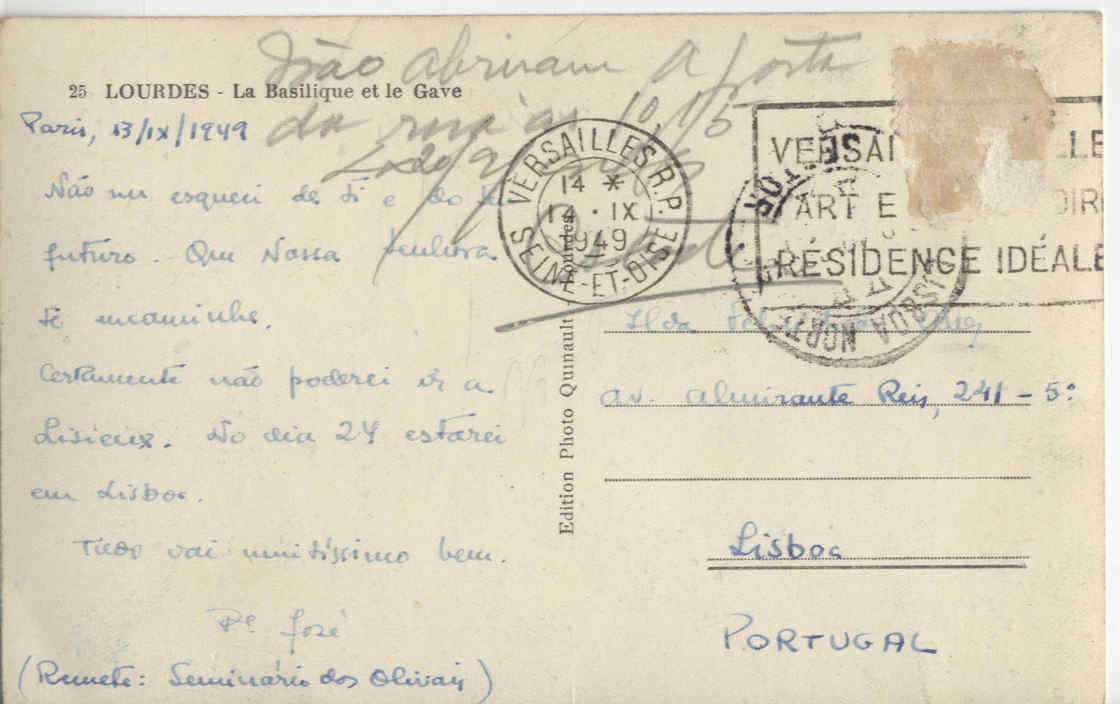 25 LOURDES - La Basilique et le Gave
Não abriram a porta
da rua às 10,15
Paris, 13/IX/1949
Não me esqueci de ti e do te
futuro. Que Nossa Senhora
te encaminhe.
Certamente não poderei ir a
Lisieux. No dia 24 estarei
em Lisboa.
Tudo vai muitíssimo bem.
Pe José
(Remete: Seminário dos Olivais)
Edition Photo Quinault - Lourdes
VERSAILLES R.P.
14 *
14 · IX
1949
SEINE-ET-OISE
VERSAI LLE
ART E OIR
RÉSIDENCE IDÉALE
LISBOA NORTE
Ilda
Av. Almirante Reis, 241 - 5º
Lisboa
PORTUGAL